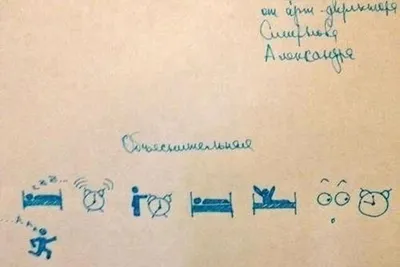 от арт-директора
Смирнова
Александра
Объяснительная
zzz...